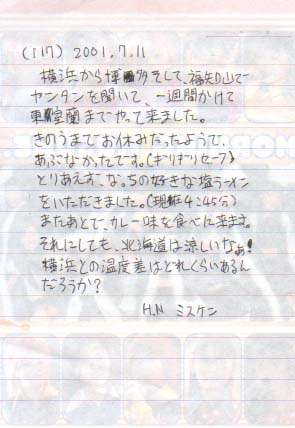 (117) 2001.7.11
横浜から博多そして、福知山で
ヤンタンを聞いて、一週間かけて
室蘭までやって来ました。
きのうまでお休みだったようで、
あぶなかったです。(ぎりぎりセーフ)
とりあえず、なっちの好きな塩ラーメン
をいただきました。(現在4:45分)
またあとで、カレー味を食べに来ます。
それにしても、北海道は涼しいなぁ!
横浜との温度差はどれくらいあるん
だろうか?
H.N ミスケン